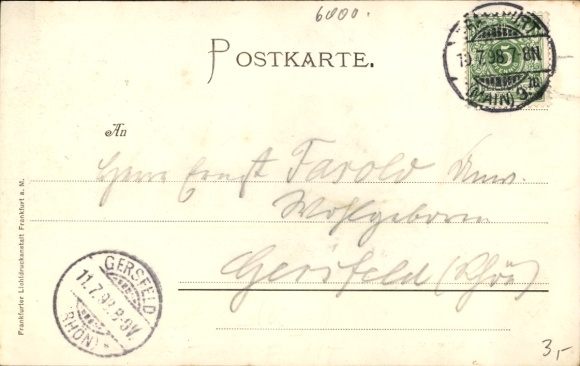 6000.
POSTKARTE.
FRANKFURT
10.7.98. 7-8N
(MAIN) 9.
5
An
Herrn Ernst Farold
Wohlgeboren
Gersfeld (Rhön)
GERSFELD
11.7.98. 8-9V.
(RHÖN)
Frankfurter Lichtdruckanstalt Frankfurt a. M.
3,-